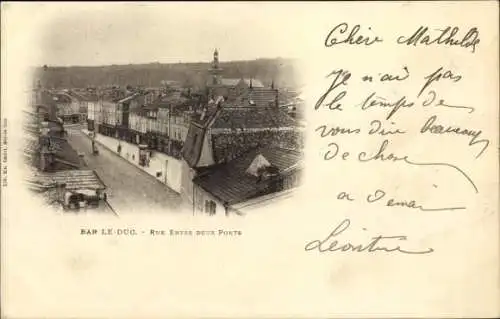 Chère Mathilde
Je n'ai pas
le temps de
vous dire beaucoup
de chose
a demain
Léontine
BAR LE-DUC. - RUE ENTRE DEUX PONTS